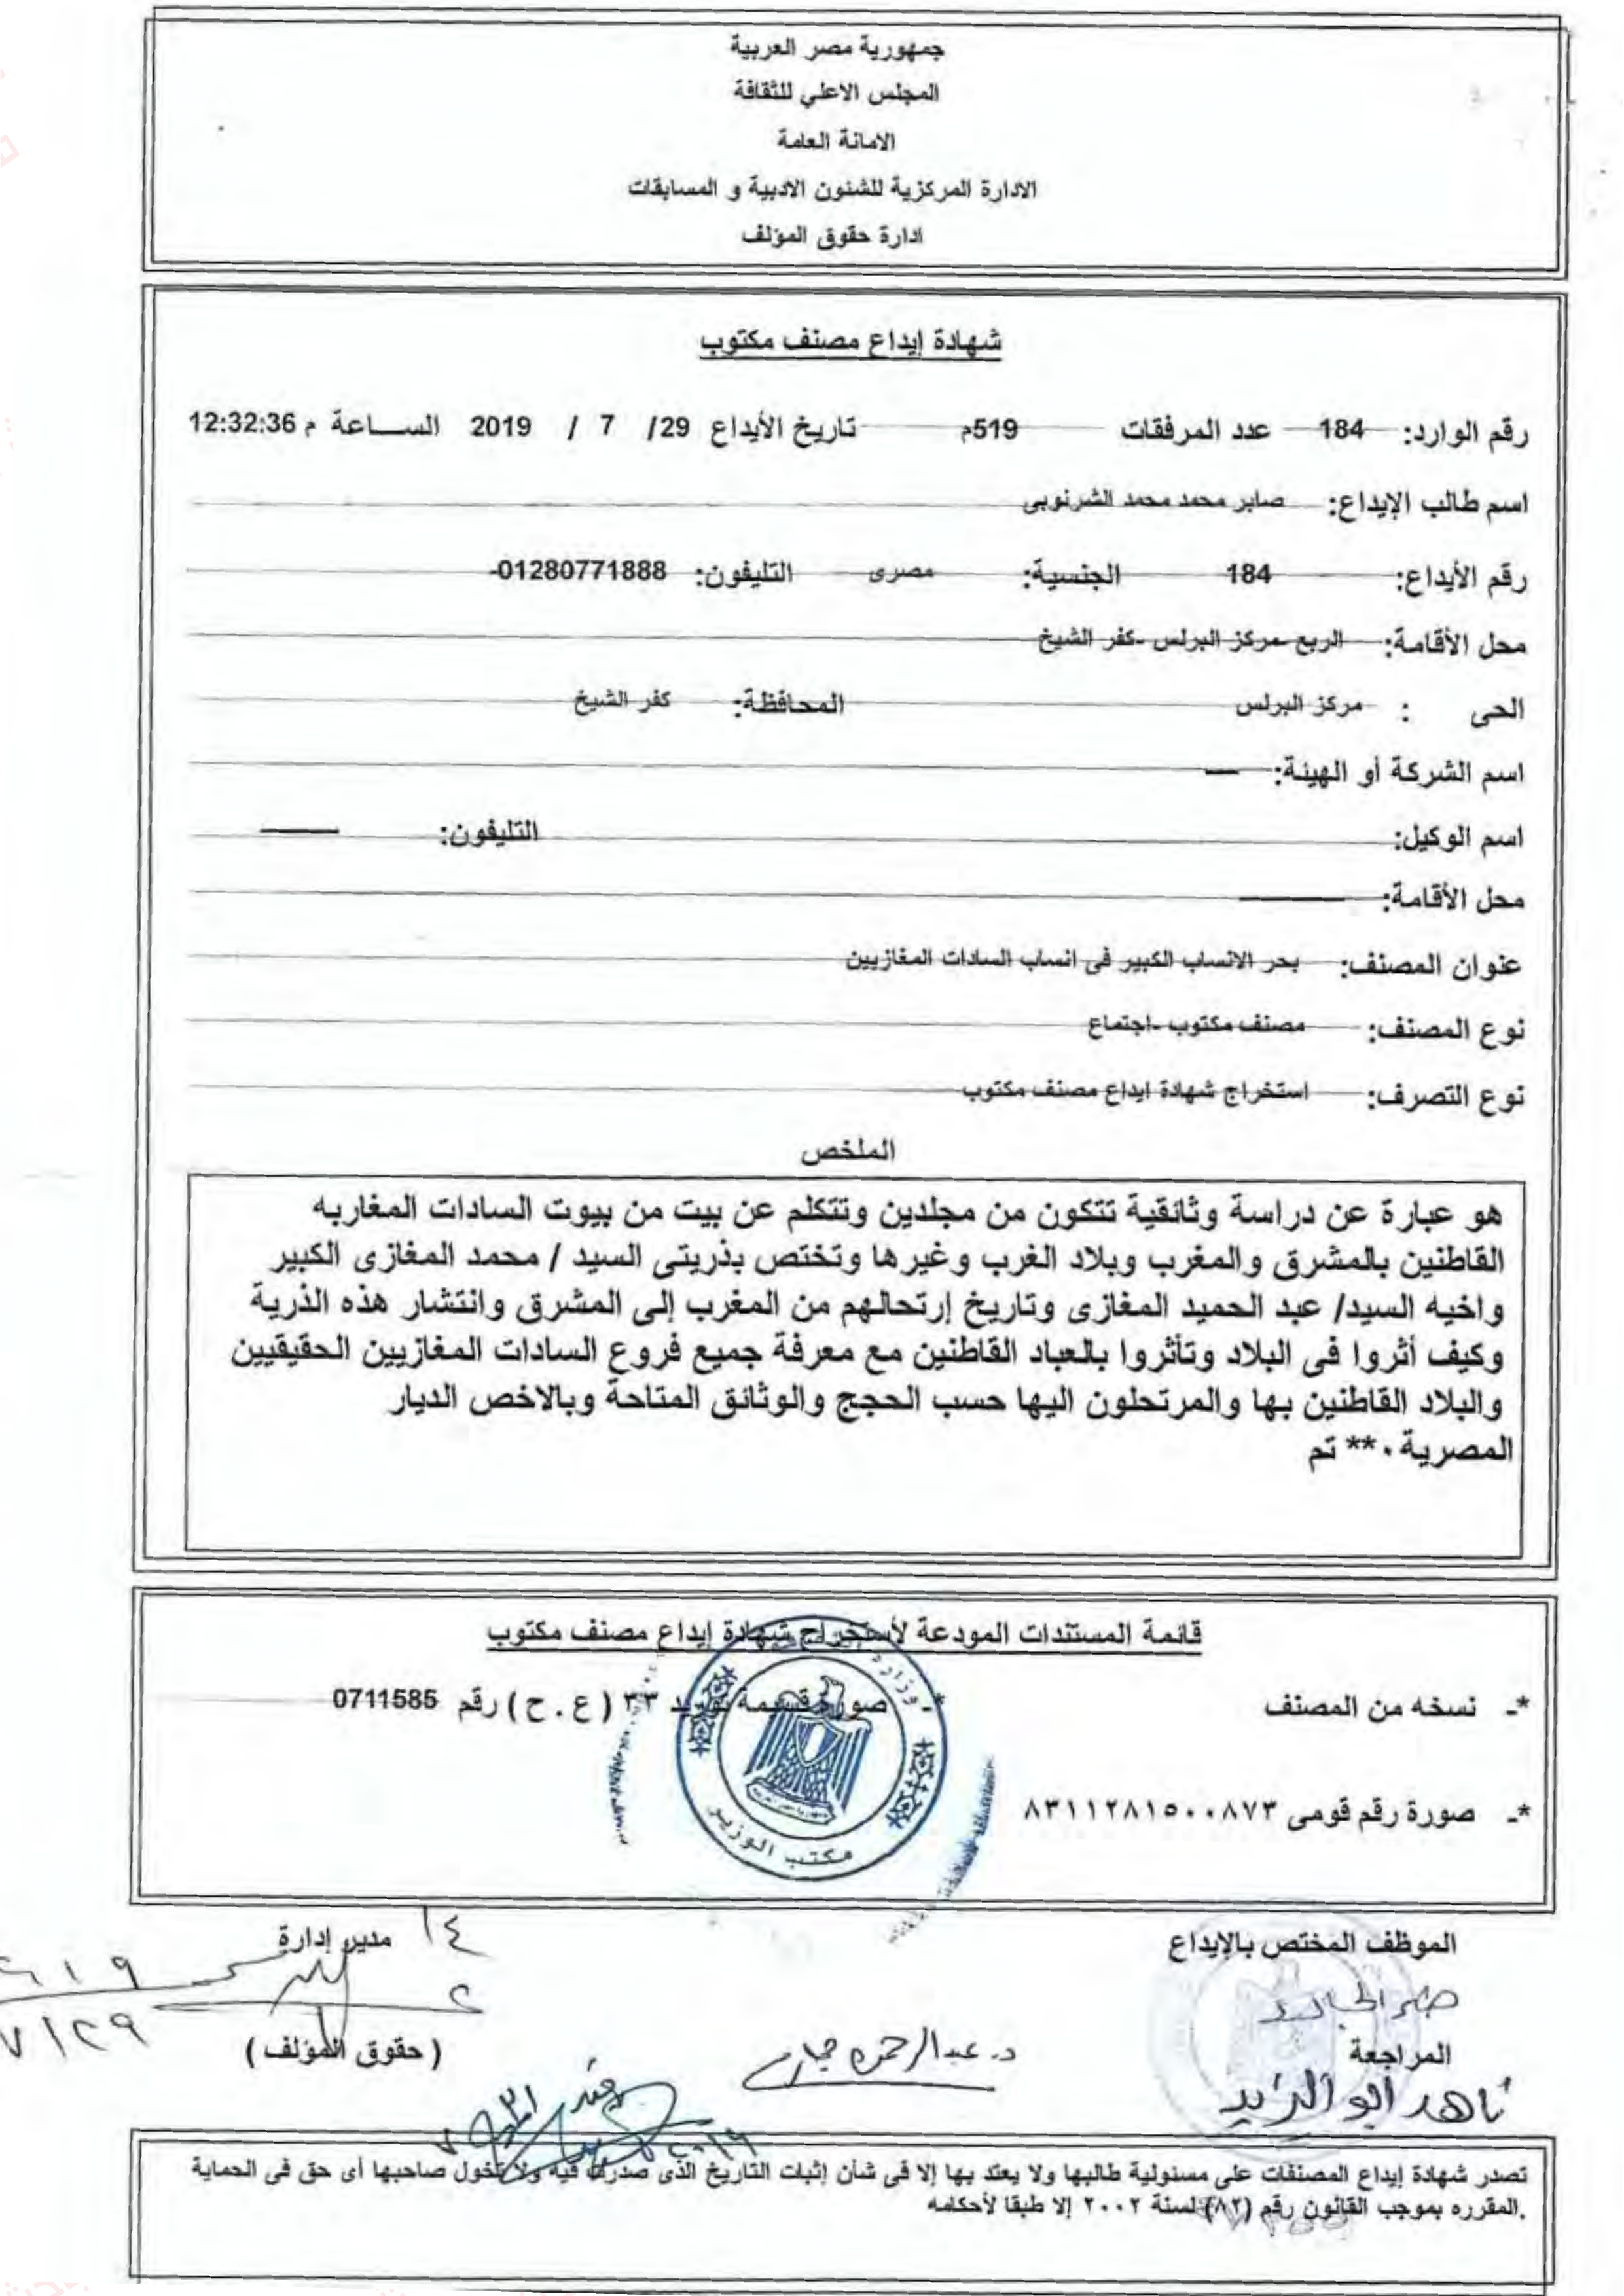 جمهورية مصر العربية
المجلس الاعلي للثقافة
الامانة العامة
الادارة المركزية للشئون الادبية و المسابقات
ادارة حقوق المؤلف
شهادة إيداع مصنف مكتوب
رقم الوارد: 184 عدد المرفقات 519م تاريخ الأيداع 29/ 7 / 2019 الســاعة م 12:32:36
اسم طالب الإيداع: صابر محمد محمد الشرنوبى
رقم الأيداع: 184 الجنسية: مصرى التليفون: 01280771888-
محل الأقامة: الربع -مركز البرلس -كفر الشيخ
الحى : مركز البرلس المحافظة: كفر الشيخ
اسم الشركة أو الهيئة:
اسم الوكيل: التليفون:
محل الأقامة:
عنوان المصنف: بحر الانساب الكبير فى انساب السادات المغازيين
نوع المصنف: مصنف مكتوب -اجتماع
نوع التصرف: استخراج شهادة ايداع مصنف مكتوب
الملخص
هو عبارة عن دراسة وثائقية تتكون من مجلدين وتتكلم عن بيت من بيوت السادات المغاربه
القاطنين بالمشرق والمغرب وبلاد الغرب وغيرها وتختص بذريتى السيد / محمد المغازى الكبير
واخيه السيد/ عبد الحميد المغازى وتاريخ إرتحالهم من المغرب إلى المشرق وانتشار هذه الذرية
وكيف أثروا فى البلاد وتأثروا بالعباد القاطنين مع معرفة جميع فروع السادات المغازيين الحقيقيين
والبلاد القاطنين بها والمرتحلون اليها حسب الحجج والوثائق المتاحة وبالاخص الديار
المصرية ٠** تم
قائمة المستندات المودعة لأستخراج شهادة إيداع مصنف مكتوب
*- نسخه من المصنف *- صورة قسيمة توريد ٣٣ ( ع . ح ) رقم 0711585
*- صورة رقم قومى ٨٣١١٢٨١٥٠٠٨٧٣
وزارة
مكتب الوزير
الموظف المختص بالإيداع
مدير إدارة
المراجعة
( حقوق المؤلف )
د. عبدالرحمن
ناهد ابو الزيد
تصدر شهادة إيداع المصنفات على مسئولية طالبها ولا يعتد بها إلا فى شأن إثبات التاريخ الذى صدرت فيه ولا تخول صاحبها أى حق فى الحماية
المقرره بموجب القانون رقم (٨٢) لسنة ٢٠٠٢ إلا طبقا لأحكامه.